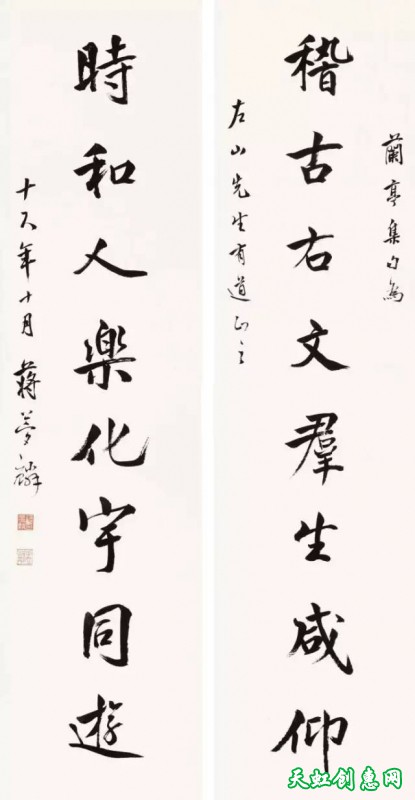 蘭亭集句為
稽古右文羣生咸仰
左山先生有道正之
時和人樂化宇同遊
十年十月 蔣夢麟
天虹创惠网